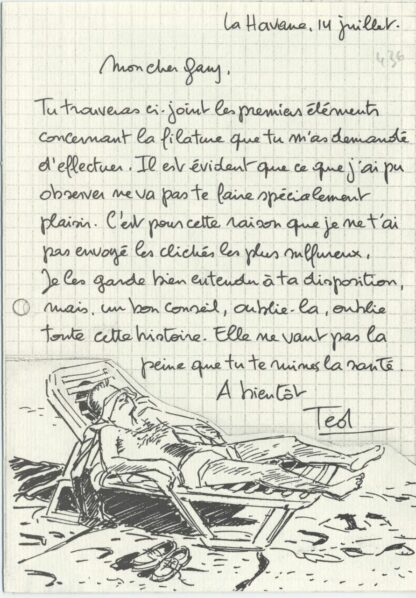 La Havane, 14 juillet.
436
Mon cher Gary,
Tu trouveras ci-joint les premiers éléments
concernant la filature que tu m'as demandé
d'effectuer. Il est évident que ce que j'ai pu
observer ne va pas te faire spécialement
plaisir. C'est pour cette raison que je ne t'ai
pas envoyé les clichés les plus sulfureux.
Je les garde bien entendu à ta disposition,
mais, un bon conseil, oublie-la, oublie
toute cette histoire. Elle ne vaut pas la
peine que tu te ruines la santé.
A bientôt
Ted